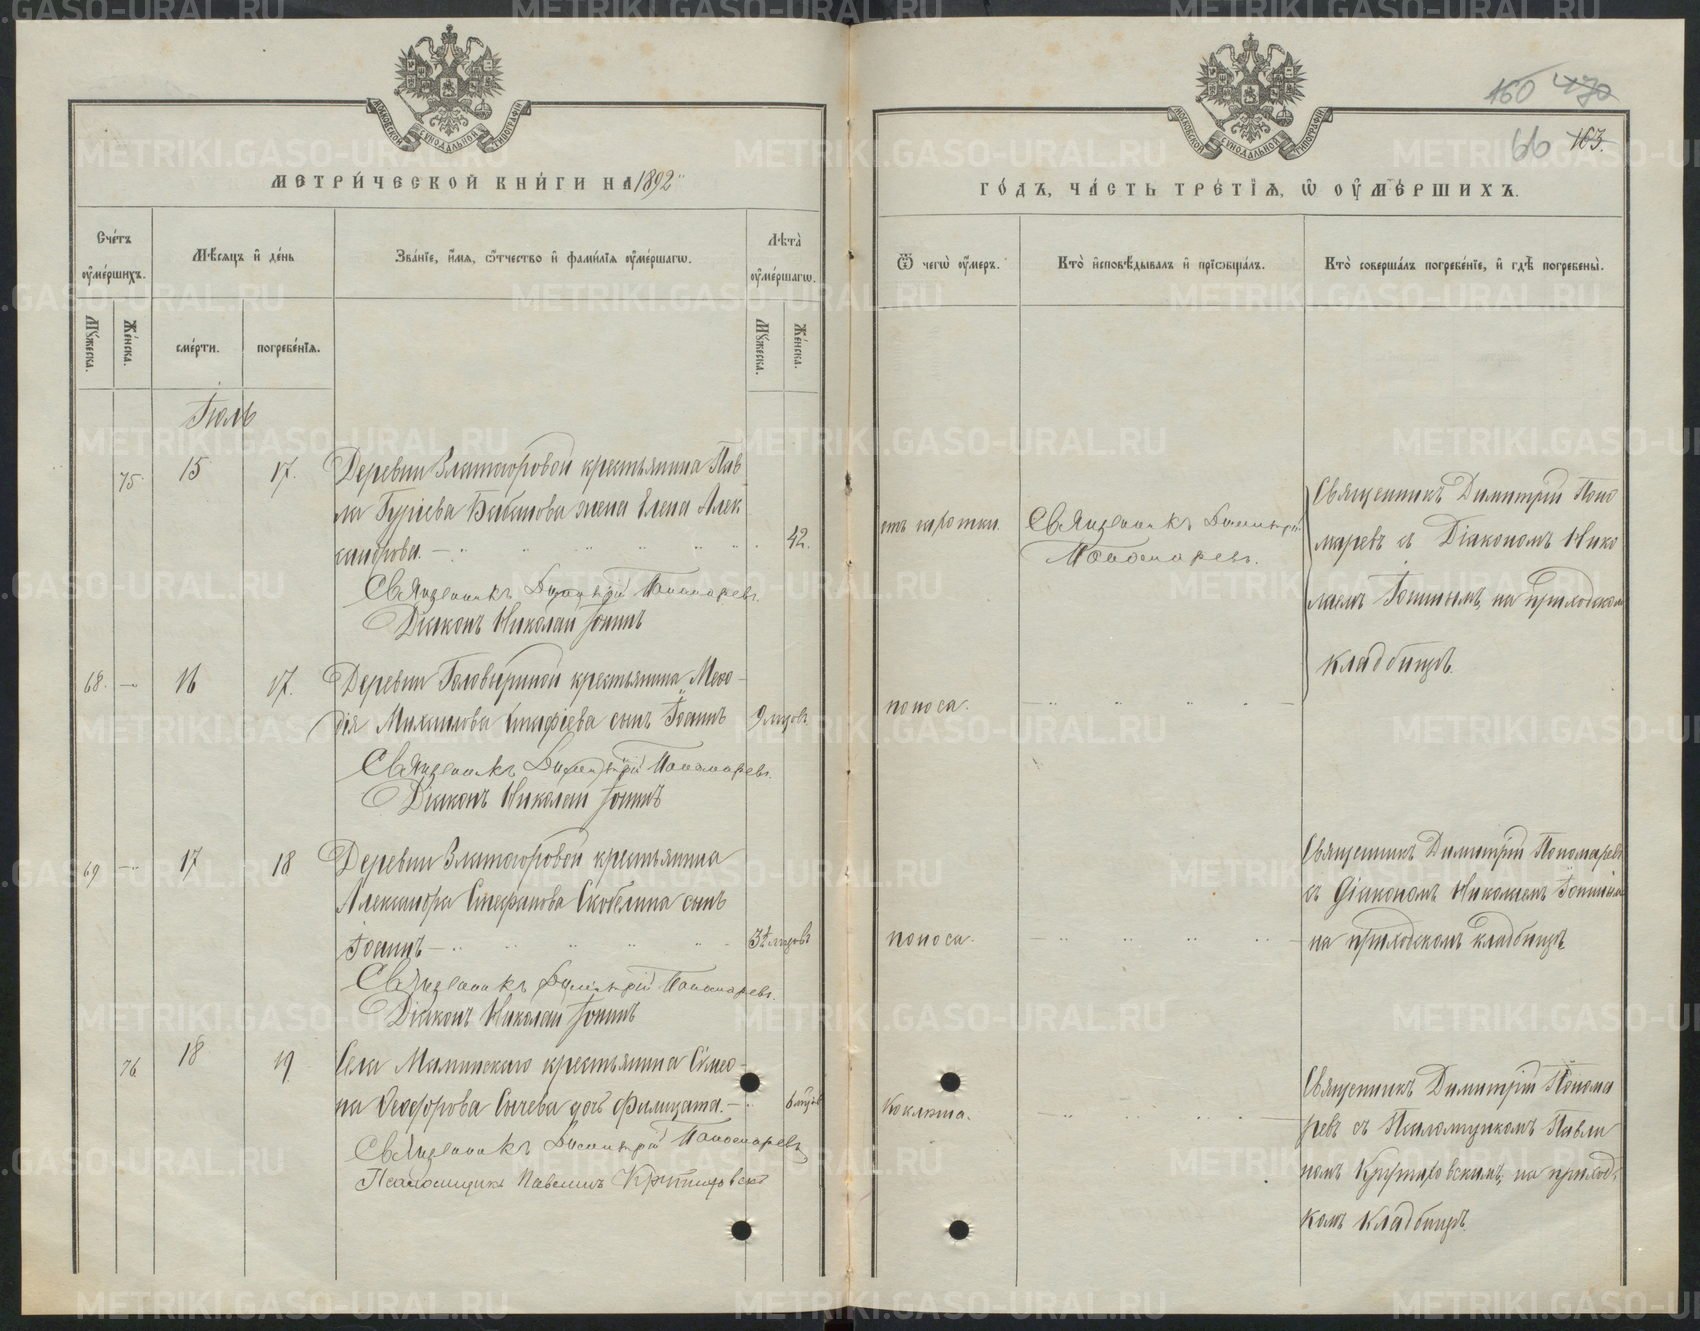 МОСКОВСКОЙ СѴНОДАЛЬНОЙ ТИПОГРАФІИ
МЕТРИ́ЧЕСКОЙ КНИ́ГИ НА 1892
Сче́тъ ѹ҆ме́ршихъ.
Мѣ́сяцъ и҆ де́нь
Зва́нїе, и҆́мя, ѻ҆́тчество и҆ фами́лїя ѹ҆ме́ршагѡ.
Лѣта̀ ѹ҆ме́ршагѡ.
Мꙋ́жеска.
Же́нска.
сме́рти.
погребе́нїя.
Мꙋ́жеска.
Же́нска.
Іюль
75. 15 17. Деревни Златогоровой крестьянина Пав
ла Гуріева Бабанова жена Елена Алек
сандрова. 42.
Священникъ Димитрій Пономаревъ.
Діаконъ Николай Іонинъ
68. 16 17. Деревни Головыриной крестьянина Меѳо
дія Михаилова сынъ Іоаннъ 9 мцовъ
Священникъ Димитрій Пономаревъ.
Діаконъ Николай Іонинъ
69 17 18 Деревни Златогоровой крестьянина
Александра Стефанова Скобелина сынъ
Іоаннъ 3½ мцовъ
Священникъ Димитрій Пономаревъ.
Діаконъ Николай Іонинъ
76. 18 19. Села Маминскаго крестьянина Симео
на Ѳеодорова Сычева дочь Филицата. 6 мцовъ
Священникъ Димитрій Пономаревъ
Псаломщикъ Павлинъ Крутиховскій
МОСКОВСКОЙ СѴНОДАЛЬНОЙ ТИПОГРАФІИ
160 470
66 163.
ГО́ДЪ, ЧА́СТЬ ТРЕ́ТЇЯ, Ѡ҆ ОУ҆МЕ́РШИХЪ.
Ѿ чегѡ̀ ѹ҆́меръ.
Кто̀ и҆сповѣ́дывалъ и҆ прїѡбща́лъ.
Кто̀ соверша́лъ погребе́нїе, и҆ гдѣ̀ погребены̀.
отъ чахотки.
Священникъ Димитрій
Пономаревъ.
Священникъ Димитрій Поно
маревъ съ Діакономъ Нико
лаемъ Іонинымъ, на приходском
кладбищѣ.
поноса.
поноса.
Священникъ Димитрій Пономаревъ
съ Діакономъ Николаемъ Іонинымъ
на приходскомъ кладбищѣ
Коклюша.
Священникъ Димитрій Понома
ревъ съ Псаломщикомъ Павли
номъ Крутиховскимъ, на приход
комъ кладбищѣ.
METRIKI.GASO-URAL.RU